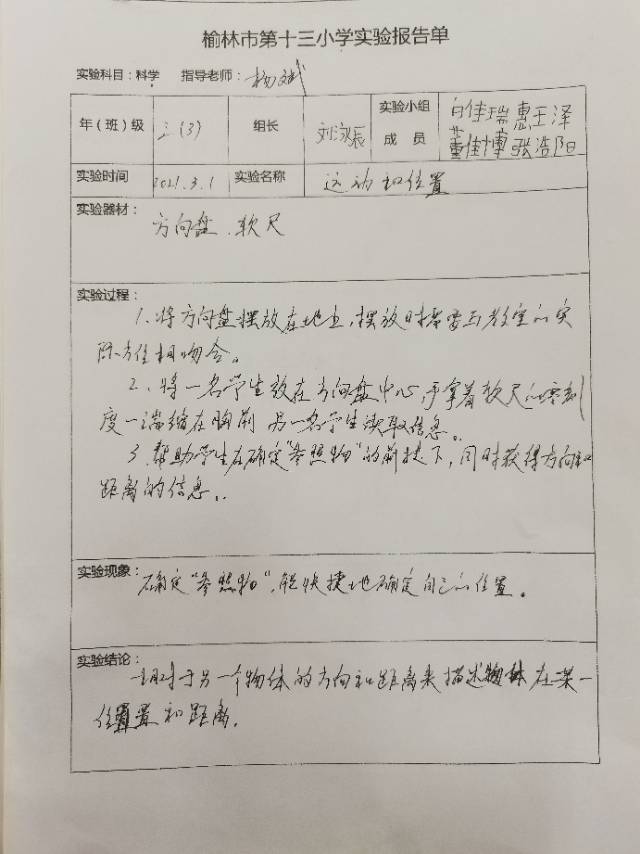 榆林市第十三小学实验报告单
实验科目：科学 指导老师：杨斌
年（班）级 三(3) 组长 刘泳辰 实验小组成员 白佳瑞 惠王泽
董佳博 张浩阳
实验时间 2021.3.1 实验名称 运动和位置
实验器材：
方向盘、软尺
实验过程：
1、将方向盘摆放在地上，摆放时需要与教室的实
际方位相吻合。
2、将一名学生放在方向盘中心，手拿着软尺的零刻
度一端 在胸前 另一名学生读取信息。
3、帮助学生在确定“参照物”的前提下，同时获得方向和
距离的信息。
实验现象：
确定“参照物”，能快捷地确定自己的位置。
实验结论：
相对于另一个物体的方向和距离来描述物体在某一
位置置和距离。